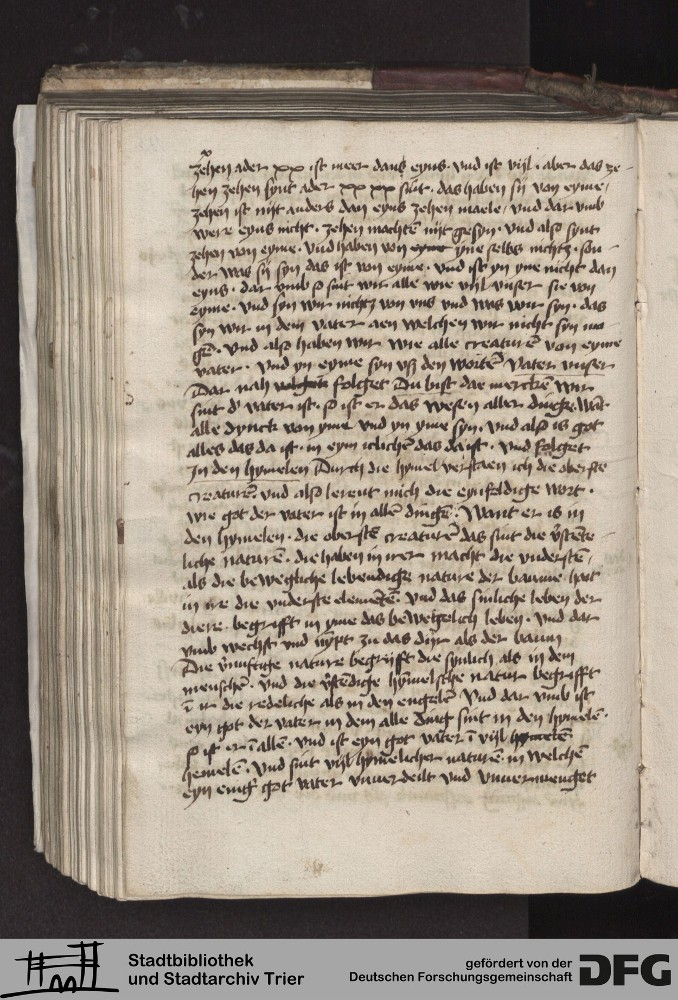 zehen ader xx ist meer dans eyns. vnd ist vijl. aber das ze-
hen zehen synt ader xx xx sint. das haben sij von eyme/
zehen ist nijt anders dan eyns zehen maele/ vnd dar vmb
were eyns nicht. zehen machtē nijt gesyn. vnd also synt
zehen von eyme. vnd haben von yme selbs nichtz. son-
der was sij syn das ist von eyme. vnd ist yn yme nicht dan
eyns. dar vmb so sint wir alle wie vijl vnser sie von
eyme. vnd syn wir nichtz von vns vnd was wir syn. das
syn wir in dem vater aen welchen wir nicht syn mo
gē. vnd also haben wir wie alle creaturē von eyme
vater. vnd yn eyme syn vß den wortē vater vnser
Dar nah folget Du bist dae merckē wir
sint d' vater ist. so ist er das wesen aller dinge. Wāt
alle dynck von yme vnd yn yme syn. vnd also is got
alles das da ist. in eym iclichē das da ist. vnd folget
In den hymelen Durch die hymel verstaen ich die oberste
creaturē vnd also lerent mich die eynfeldige wort.
wie got der vater ist in allē dingē. Want er is in
den hymelen. die oberstē creaturē das sint die v'stente-
liche naturē. die haben in irer macht die vnderstē/
als die bewegliche lebendige nature der baume hait
in ire die vnderste elemētē. vnd das sinliche leben der
diere. begrifft in yme das bewegelich leben. vnd dar
vmb wechst vnd nympt zu das dijr als der baum
Die v'nuftige nature begrijfft die synlich als in dem
menschē. vnd die v'stēdige hymelsche natur begrifft
ī ir die redeliche als in den engelē vnd dar vmb ist
eyn got der vater in dem alle ding sint in den hymelen.
so ist er ī allē. vnd ist eyn got vater ī vijl
hemelē. vnd sint vijl hymelicher naturē in welchē
eyn einig got vater vnuerdeilt vnd vnuermenget
Stadtbibliothek
und Stadtarchiv Trier
gefördert von der
Deutschen Forschungsgemeinschaft
DFG